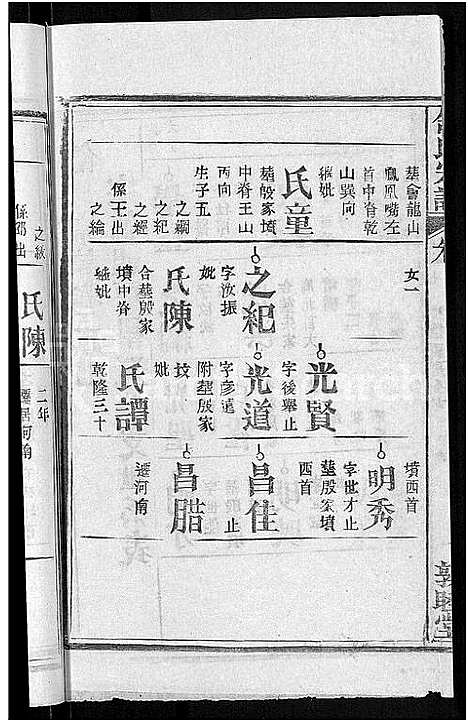 葬會龍山
鳳凰嘴左
首中脊乾
山巽向
繼妣
氏童
葬殷家墳
中脊壬山
丙向
生子五
之綱
之紀
之經
係王出
之綸
女一
之紀
字汝振
妣
氏陳
合葬殷家
墳中脊
繼妣
光賢
字後舉止
光道
字彥遠
附葬殷家
墳
妣
氏譚
乾隆三十
墳西首
明秀
字世才止
葬殷家墳
西首
昌佳
止
昌腊
遷河南
之紘
係鄧出
氏陳
二年
遷居河南
敦睦堂